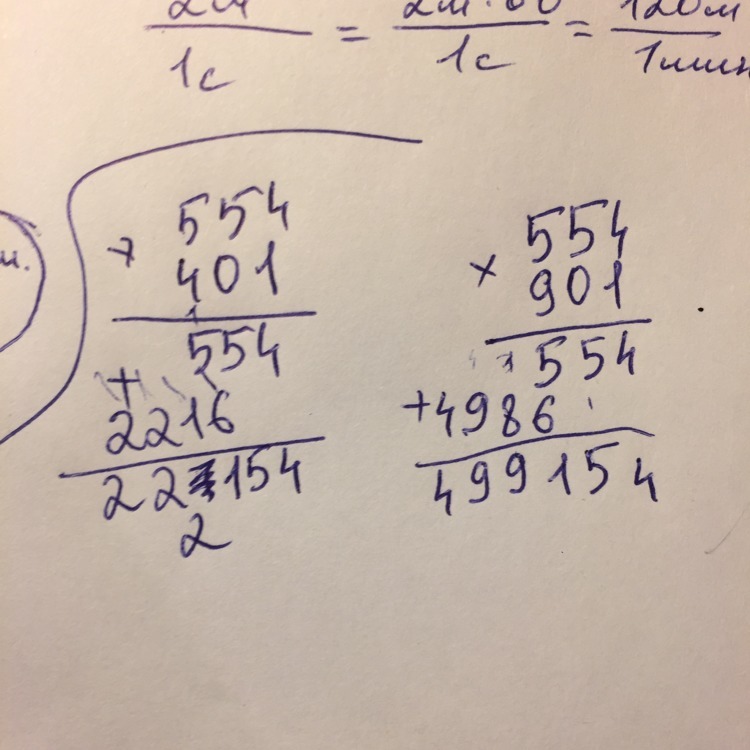 2м = 2м·60 = 120м
1с 1с 1мин
и.
× 554
401
1
554
+
2216
22 154
2
× 554
901
1
554
+4986
499154